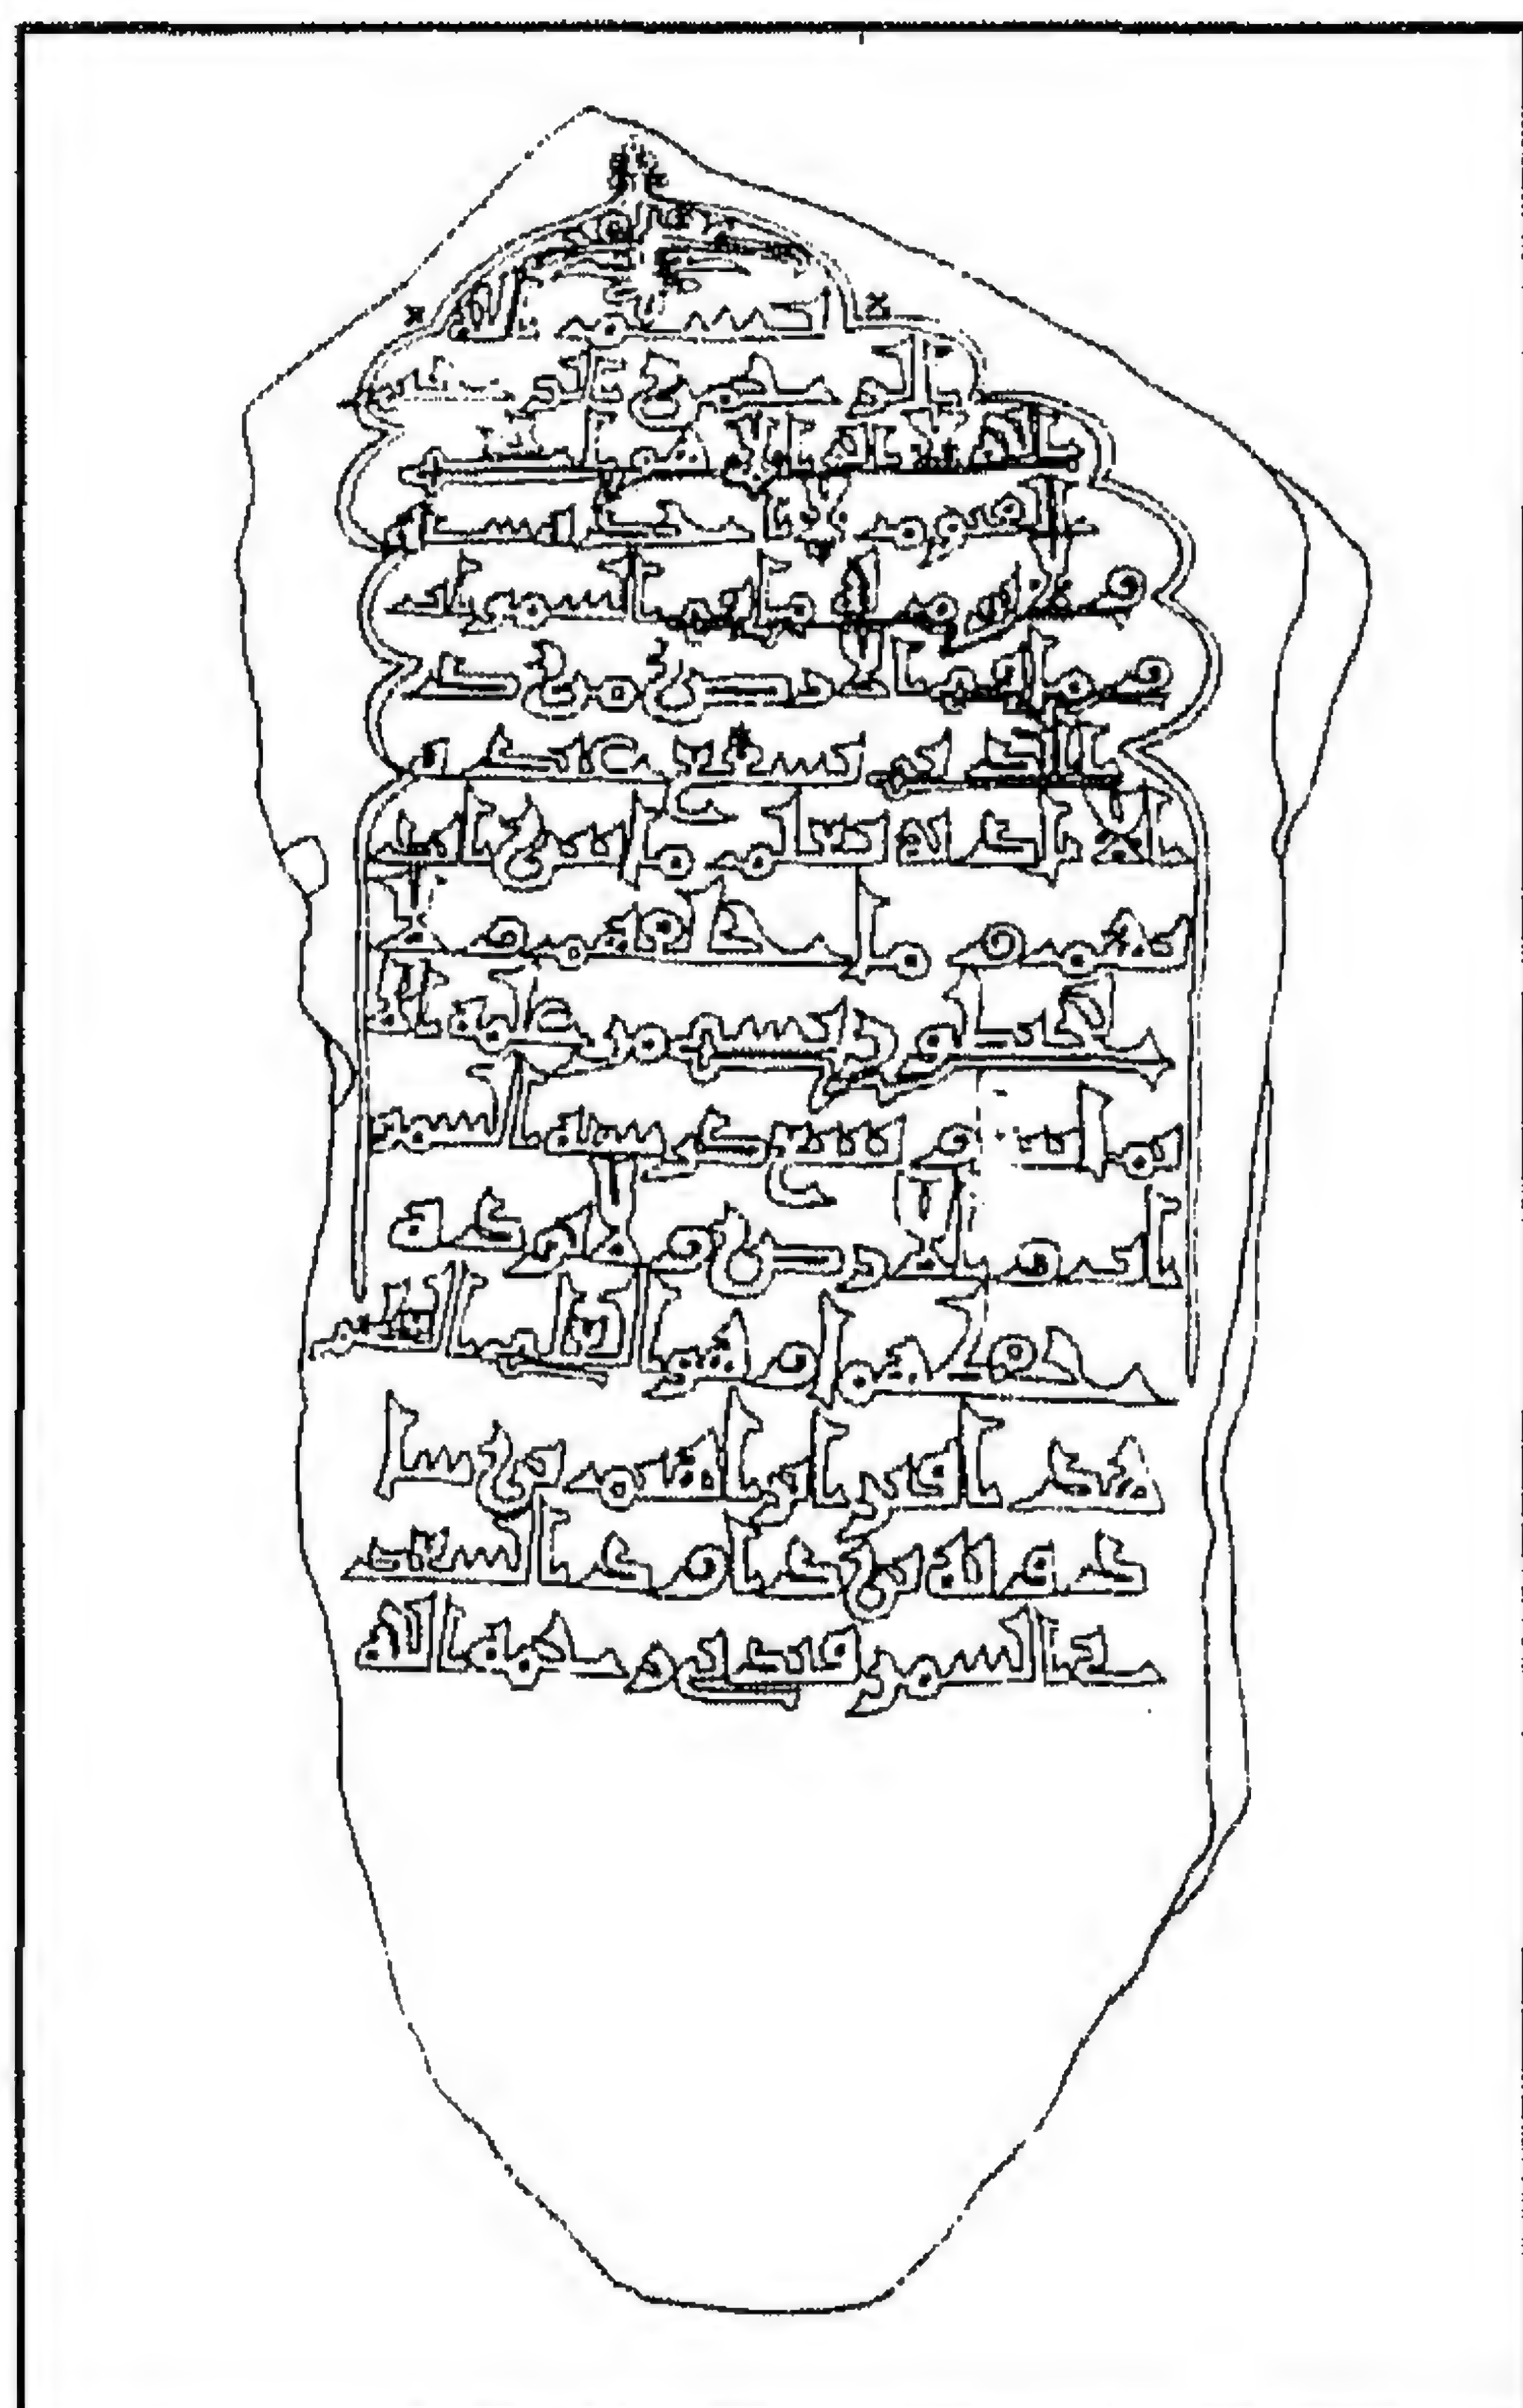 بسم الله
الرحمن الرحيم
الله لا اله الا هو الحي
القيوم لا تاخذه سنة
ولا نوم له ما في السموات
وما في الارض من ذا
الذي يشفع عنده
الا باذنه يعلم ما بين ايد
يهم وما خلفهم ولا
يحيطون بشي من علمه الا
بما شا وسع كرسيه السمو
ات والارض ولا يوده
حفظهما وهو العلي العظيم
هذا قبر ابراهيم بن
بن
السمرقندي رحمه الله